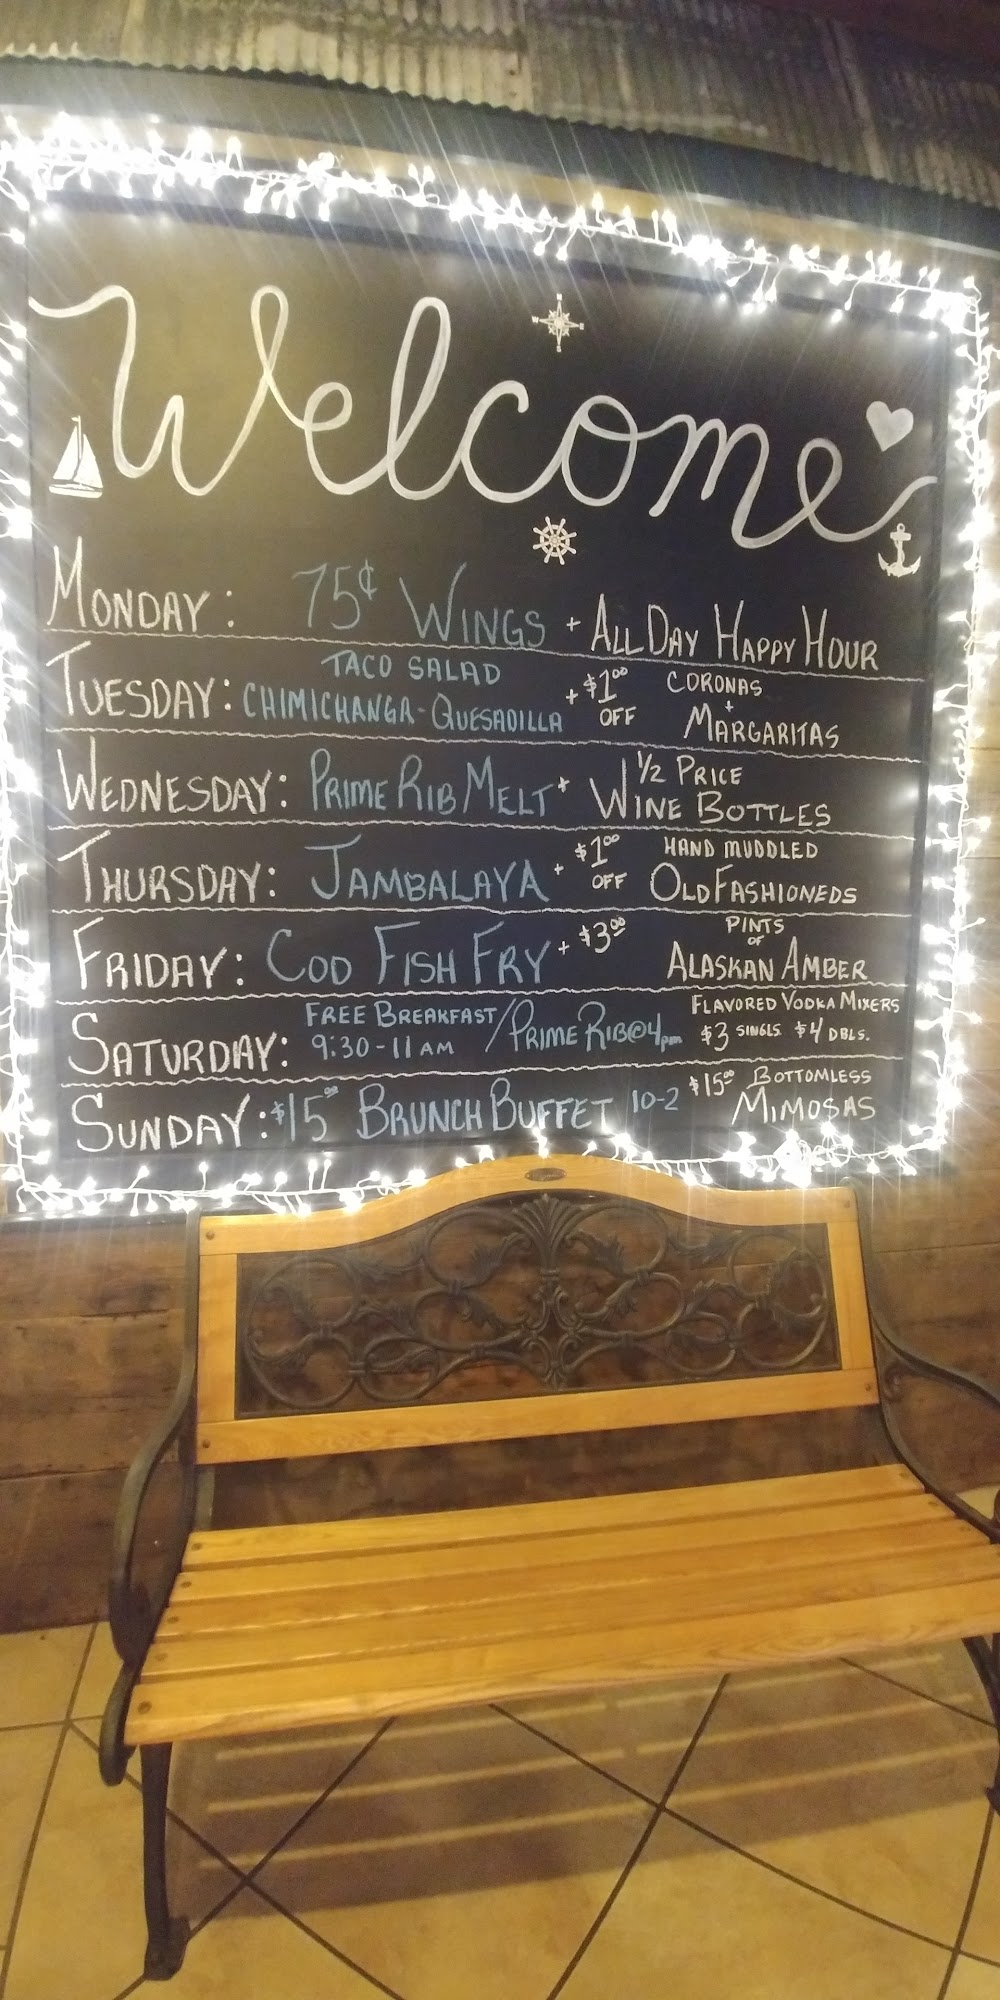 Welcome
MONDAY: 75¢ WINGS + ALL DAY HAPPY HOUR
TUESDAY: TACO SALAD CHIMICHANGA-QUESADILLA + $1.00 OFF CORONAS + MARGARITAS
WEDNESDAY: PRIME RIB MELT + 1/2 PRICE WINE BOTTLES
THURSDAY: JAMBALAYA + $1.00 OFF HAND MUDDLED OLD FASHIONEDS
FRIDAY: COD FISH FRY + $3.00 PINTS OF ALASKAN AMBER
SATURDAY: FREE BREAKFAST 9:30-11AM / PRIME RIB@4pm FLAVORED VODKA MIXERS $3 SINGLS. $4 DBLS.
SUNDAY: $15.00 BRUNCH BUFFET 10-2 $15.00 BOTTOMLESS MIMOSAS